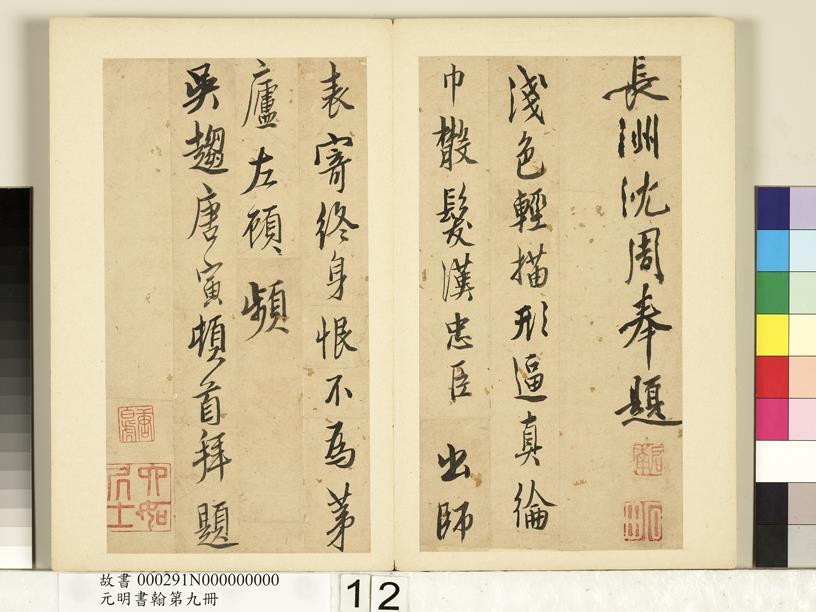 長洲沈周奉題
淺色輕描形逼真綸
巾鬅髮漢忠臣出師
表寄終身恨不為茅
廬左顧頻
吳趨唐寅頓首拜題
六如居士
故書 000291N000000000
元明書翰第九冊
12